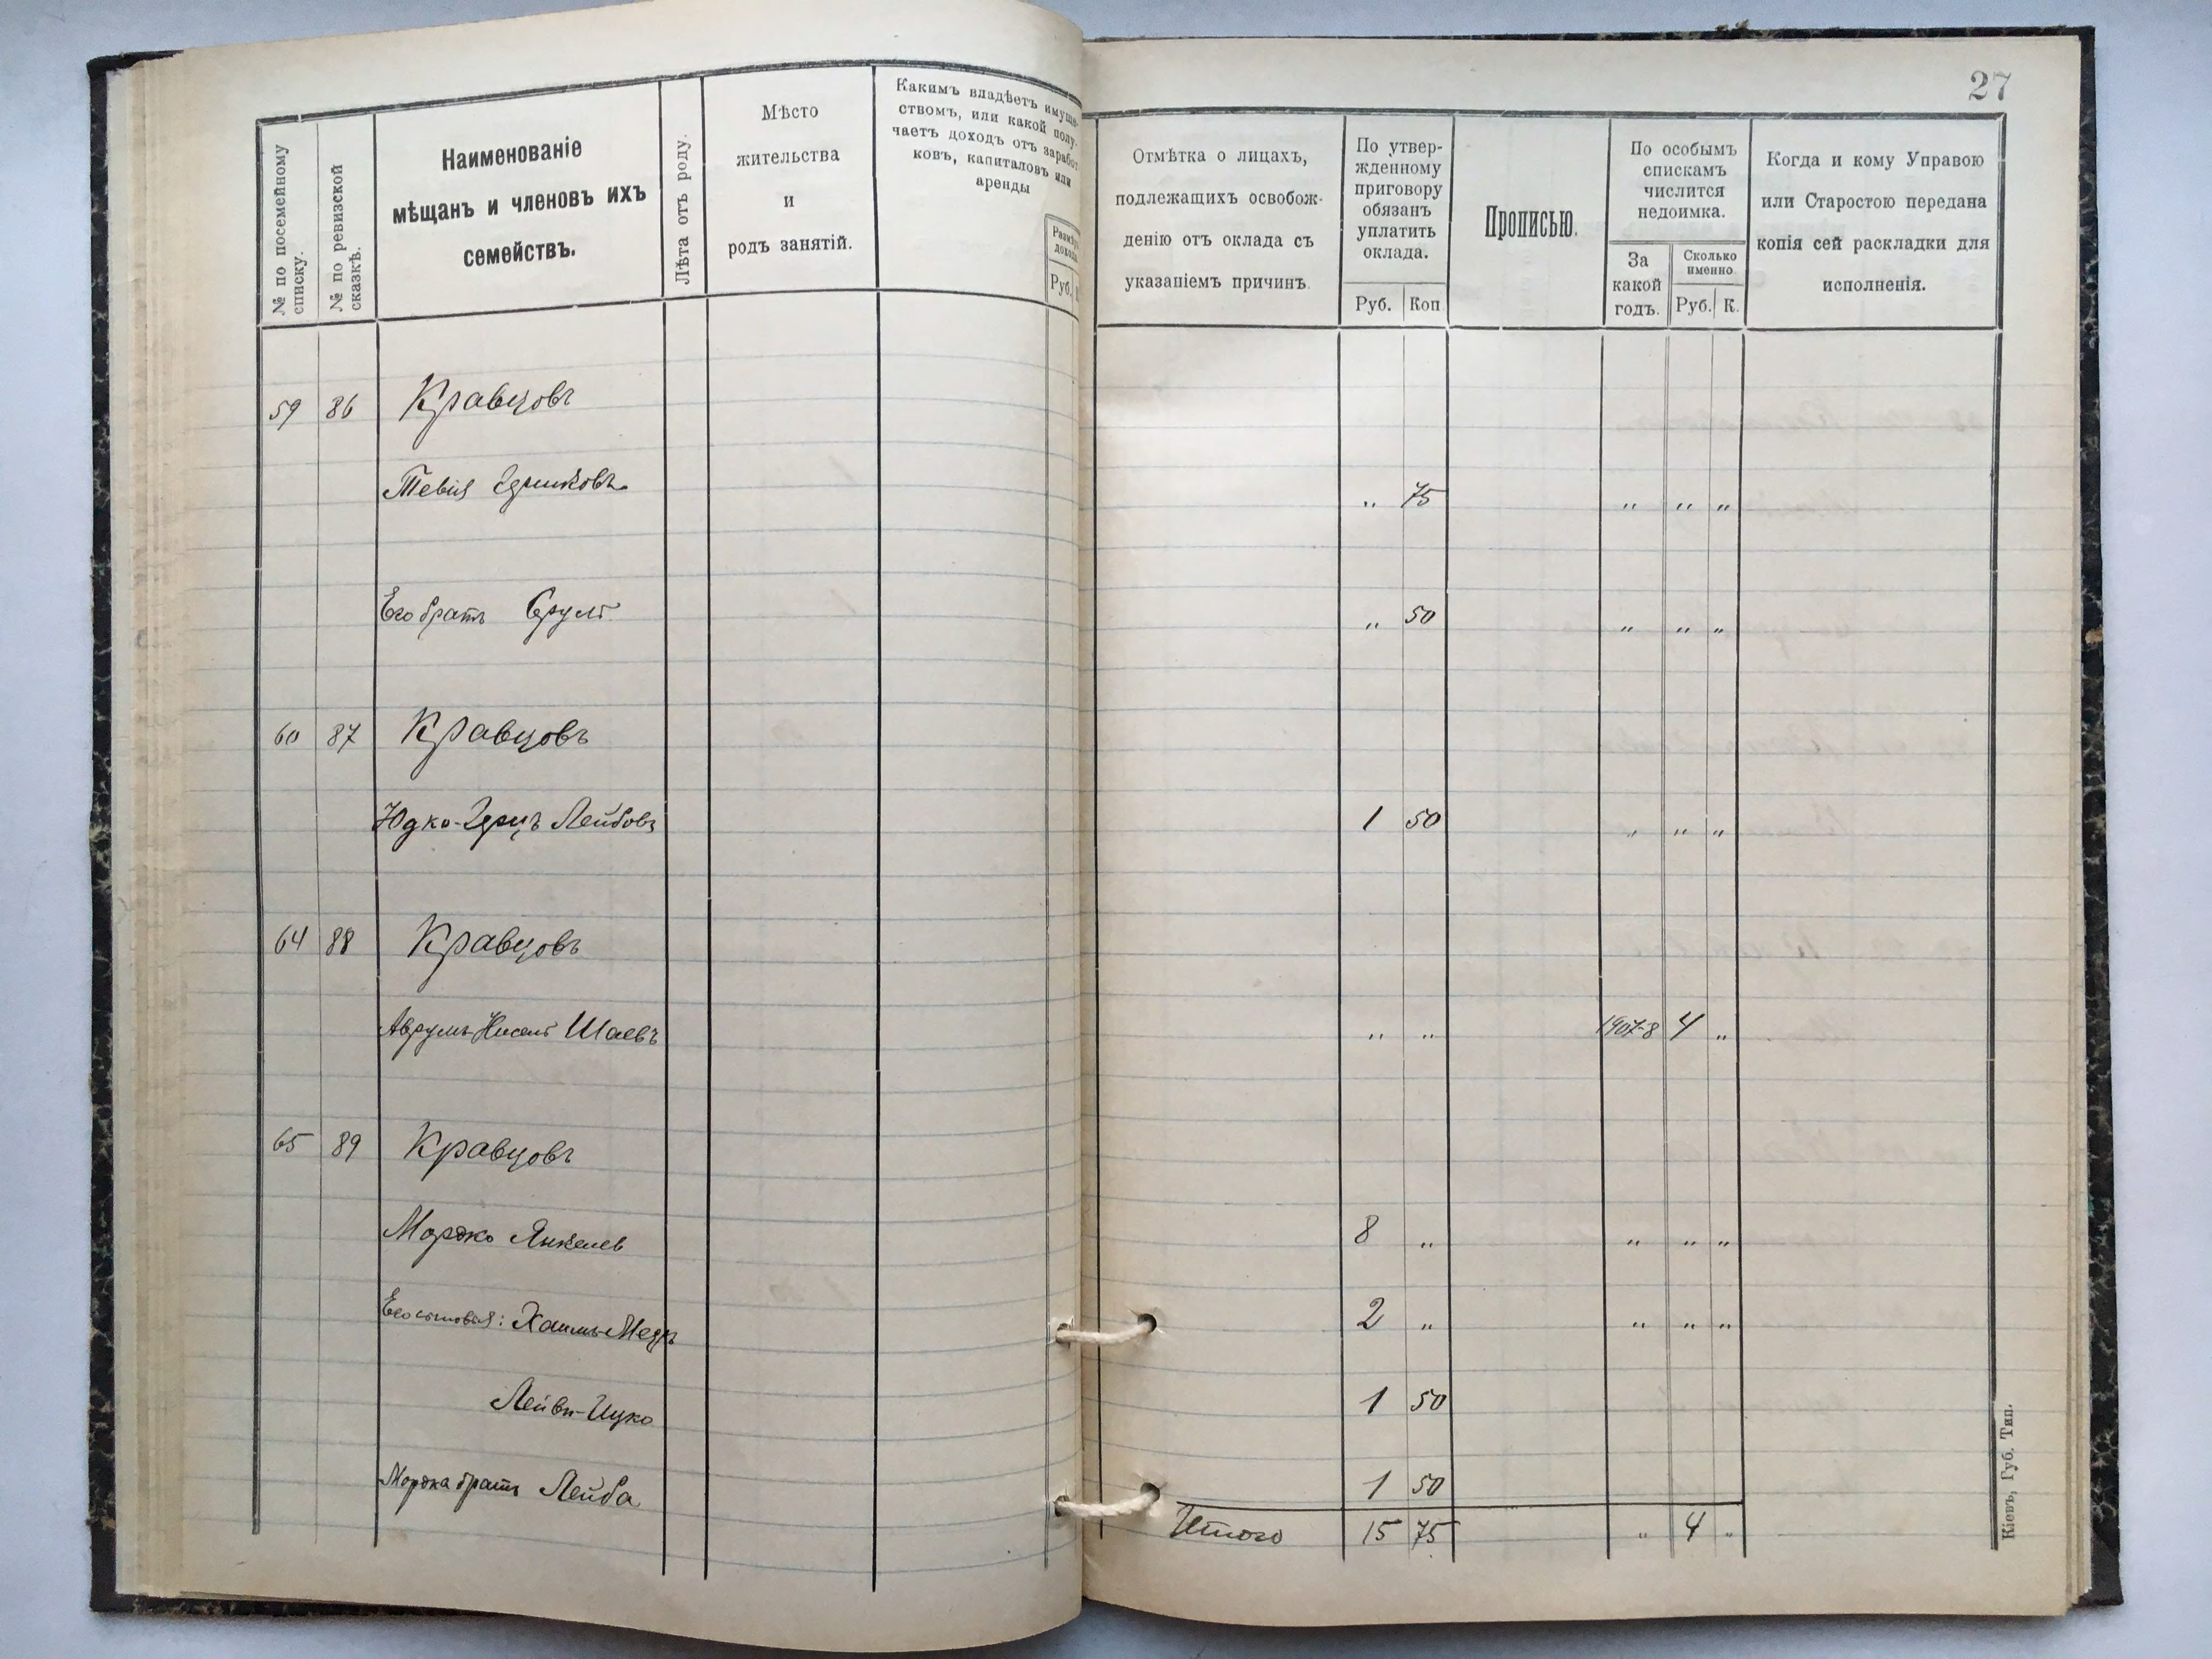 27
№ по посемейному
списку.
№ по ревизской
сказкѣ.
Наименованіе
мѣщанъ и членовъ ихъ
семействъ.
Лѣта отъ роду.
Мѣсто
жительства
и
родъ занятій.
Какимъ владѣетъ имуще-
ствомъ, или какой полу-
чаетъ доходъ отъ заработ
ковъ, капиталовъ или
аренды
Размѣръ
дохода
Руб.
Отмѣтка о лицахъ,
подлежащихъ освобож-
денію отъ оклада съ
указаніемъ причинъ.
По утвер-
жденному
приговору
обязанъ
уплатить
оклада.
Руб. Коп.
Прописью.
По особымъ
спискамъ
числится
недоимка.
За
какой
годъ.
Сколько
именно
Руб. К.
Когда и кому Управою
или Старостою передана
копія сей раскладки для
исполненія.
59 86 Кравцовъ
Тевія " 75 " " "
Его братъ Срулъ " 50 " " "
60 87 Кравцовъ
Юдко-Герцъ Лейбовъ 1 50 " " "
64 88 Кравцовъ
Аврумъ-Нисель Шаевъ " " 1907-8 4 "
65 89 Кравцовъ
Мордко Янкелев 8 " " " "
Его сыновья: Хаимъ- 2 " " " "
Лейви-Ицко 1 50
Мордка братъ Лейба 1 50
Итого 15 75 " 4 "
Кіевъ, Губ. Тип.